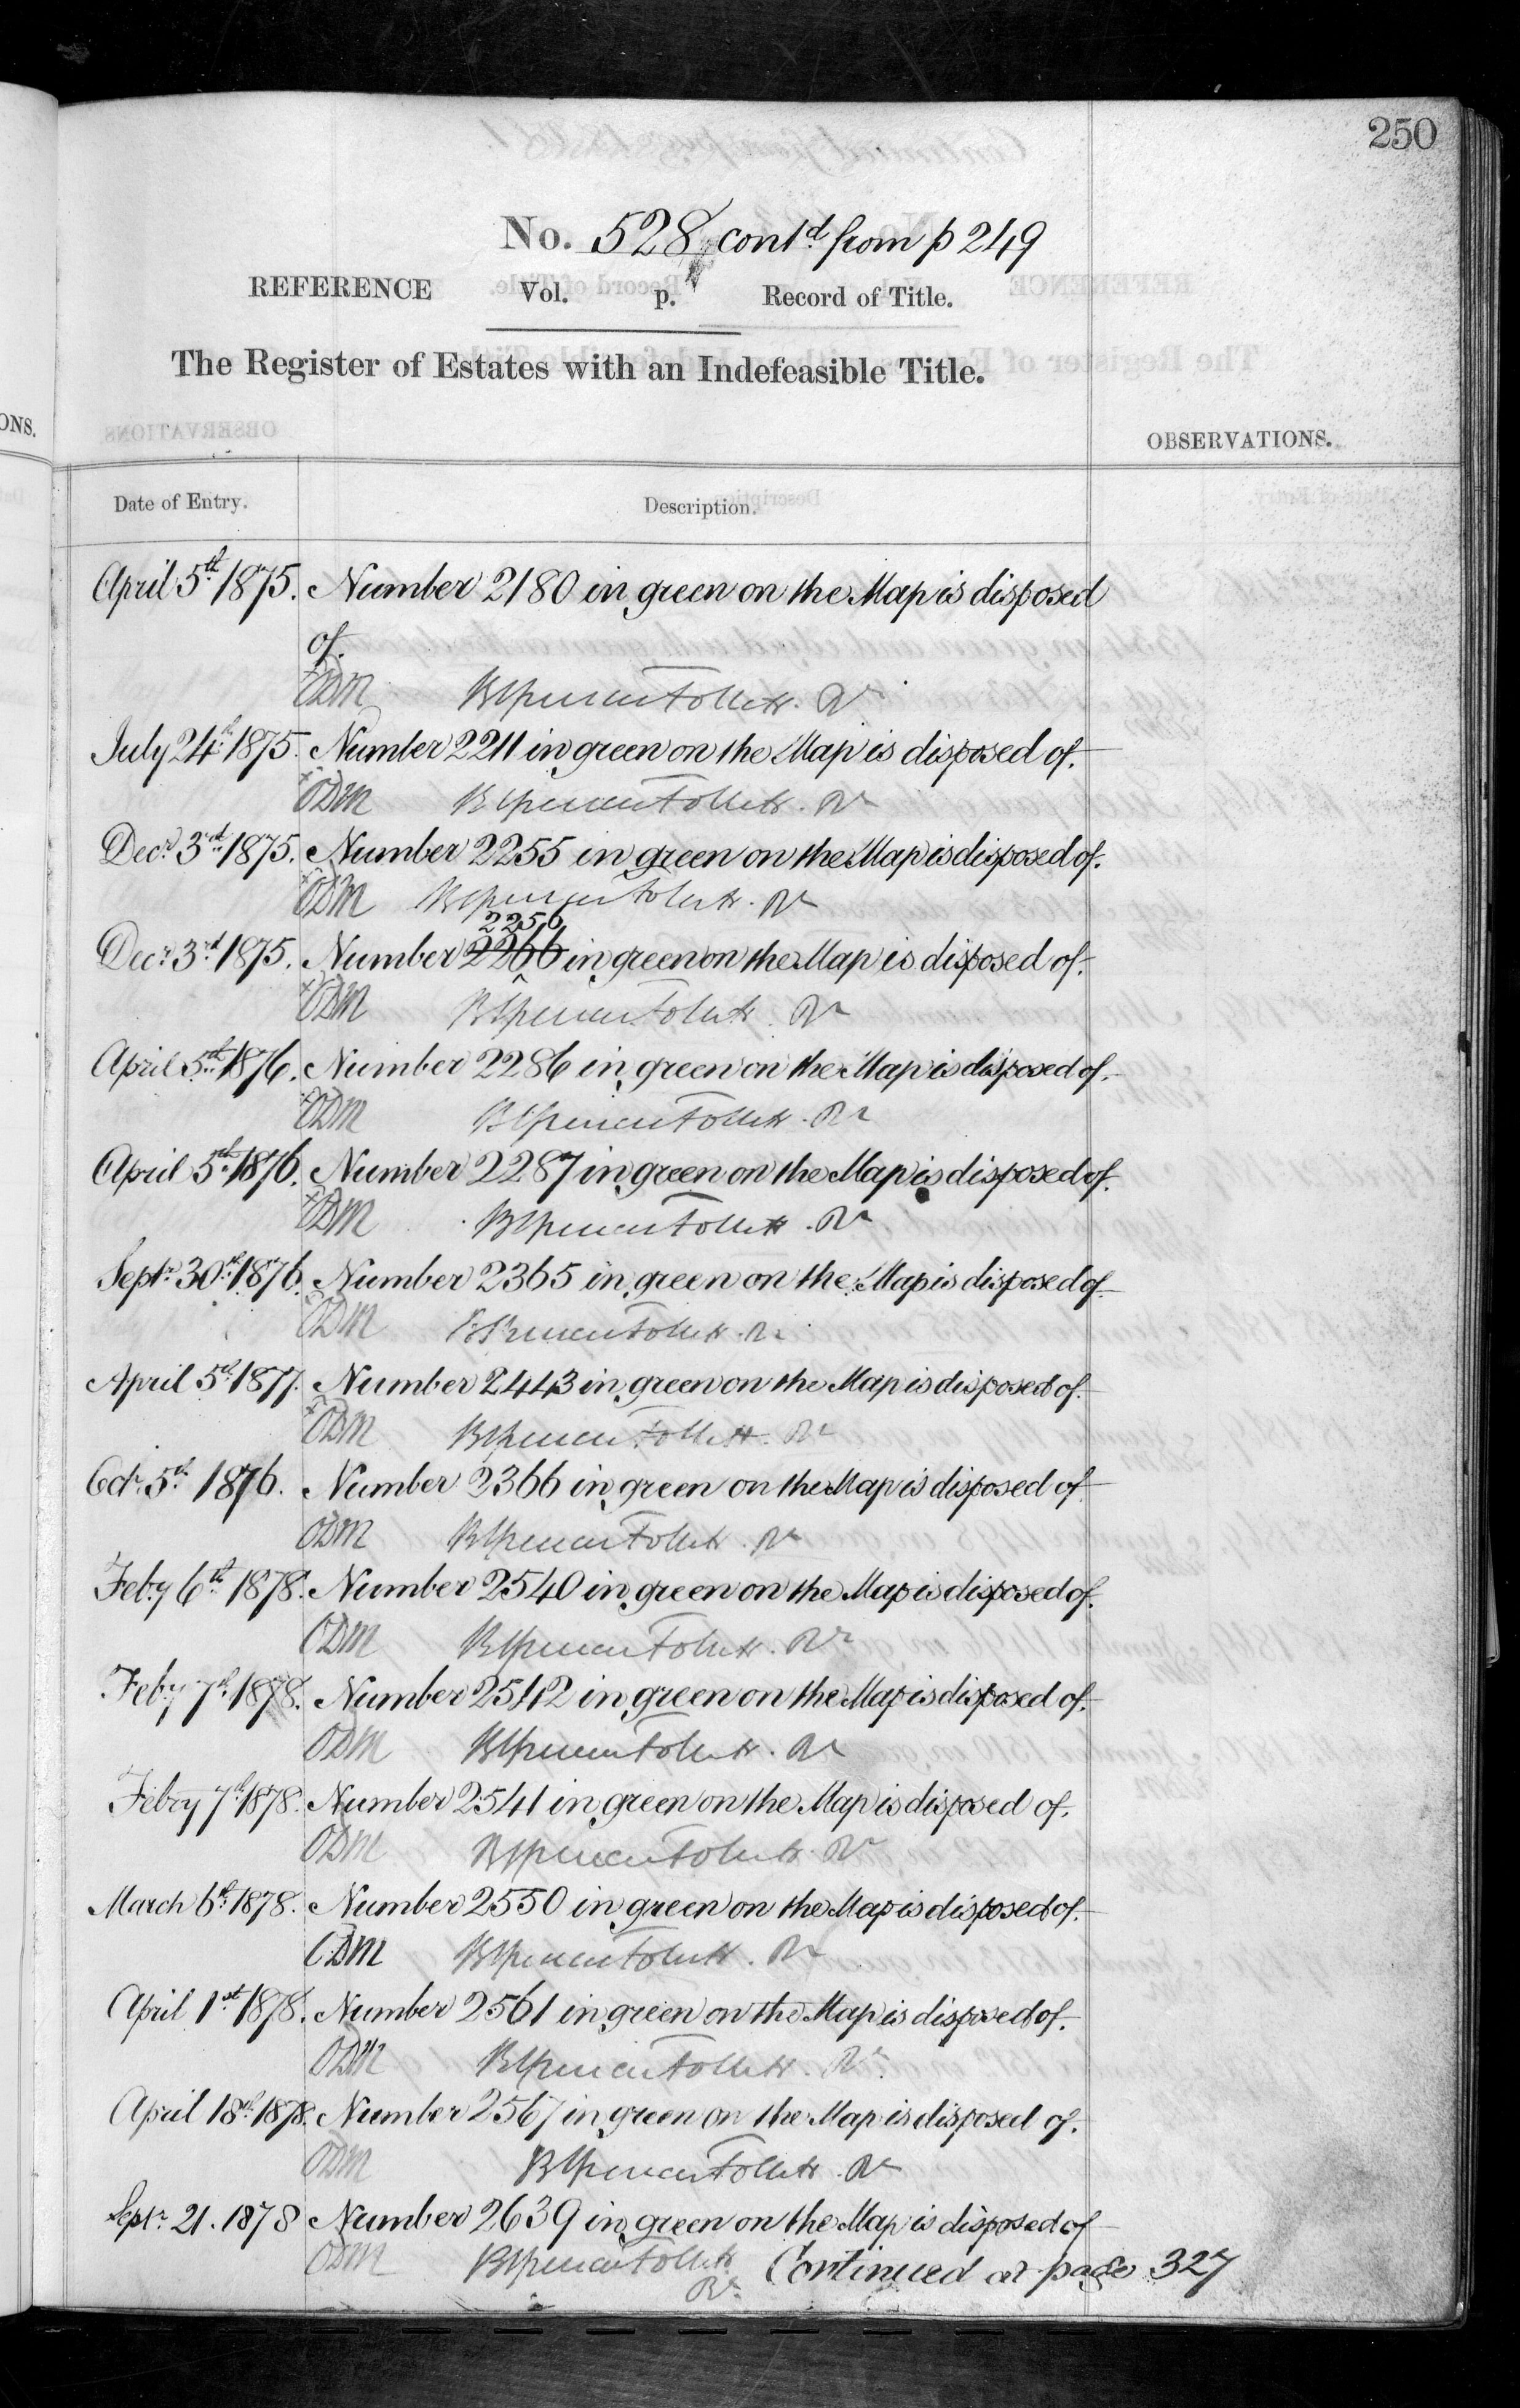 250
No. 528 contd from p 249
REFERENCE Vol. p. Record of Title.
The Register of Estates with an Indefeasible Title.
ONS.
OBSERVATIONS.
Date of Entry. Description.
April 5th 1875. Number 2180 in green on the Map is disposed
of.
ODM
July 24th 1875. Number 2211 in green on the Map is disposed of.
ODM
Decr 3rd 1875. Number 2255 in green on the Map is disposed of.
ODM
2256
Decr 3rd 1875. Number 2266 in green on the Map is disposed of.
ODM
April 5th 1876. Number 2286 in green on the Map is disposed of.
ODM
April 5th 1876. Number 2287 in green on the Map is disposed of.
ODM
Septr 30th 1876. Number 2365 in green on the Map is disposed of
ODM
April 5th 1877. Number 2443 in green on the Map is disposed of.
ODM
Octr 5th 1876. Number 2366 in green on the Map is disposed of
ODM
Feby 6th 1878. Number 2540 in green on the Map is disposed of.
ODM
Feby 7th 1878. Number 2542 in green on the Map is disposed of.
ODM
Febry 7th 1878. Number 2541 in green on the Map is disposed of.
ODM
March 6th 1878. Number 2550 in green on the Map is disposed of.
ODM
April 1st 1878. Number 2561 in green on the Map is disposed of.
ODM
April 18th 1878. Number 2567 in green on the Map is disposed of.
ODM
Septr 21. 1878 Number 2639 in green on the Map is disposed of
ODM Continued at page 327